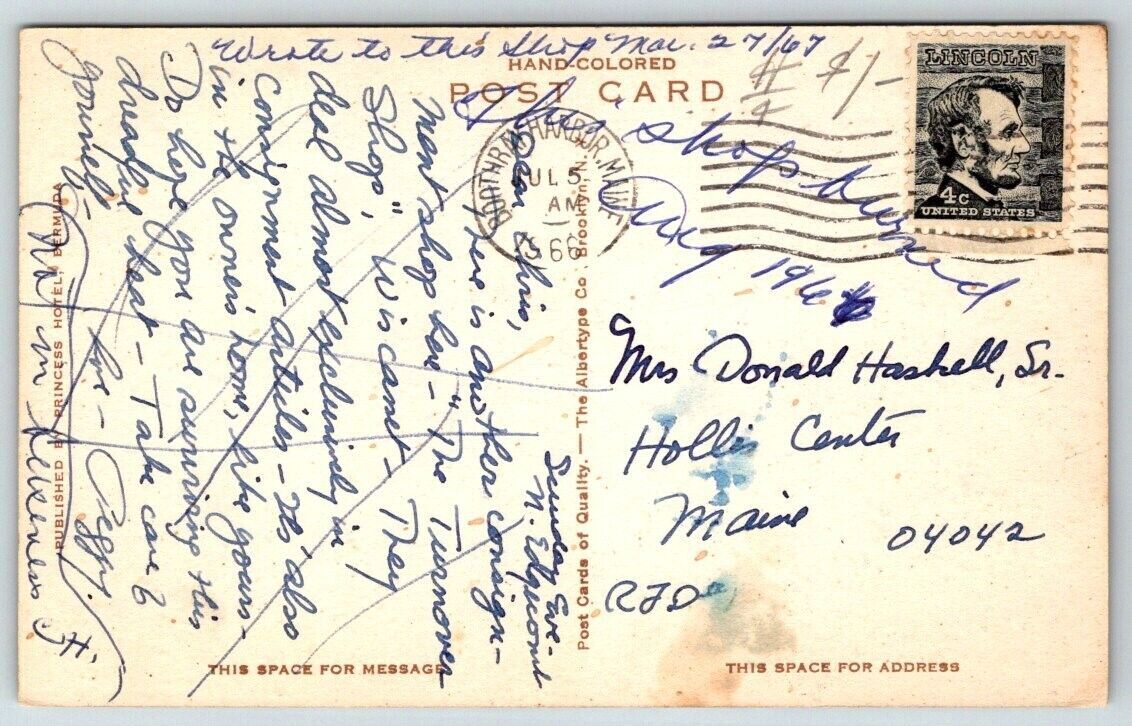 Wrote to this Shop Mar. 27/67
# $1-
HAND-COLORED
POST CARD
LINCOLN
4c
UNITED STATES
BOOTHBAY HARBOR, MAINE
JUL 5
AM
1966
This shop burned
Aug 1966
Sunday Eve-
N. Edgecomb
Dear Chris,
Here is another consign-
ment shop here - "The Turnover
Shop," Wiscasset - They
deal almost exclusively in
consignment articles - It's also
in the owner's home, like yours -
Do hope you are surviving this
dreadful heat - Take care of
yourself -
Love - Peggy H.
PUBLISHED BY PRINCESS HOTEL, BERMUDA
Post Cards of Quality. — The Albertype Co., Brooklyn, N. Y.
Mrs Donald Haskell, Sr.
Hollis Center
Maine 04042
RFD
THIS SPACE FOR MESSAGE
THIS SPACE FOR ADDRESS